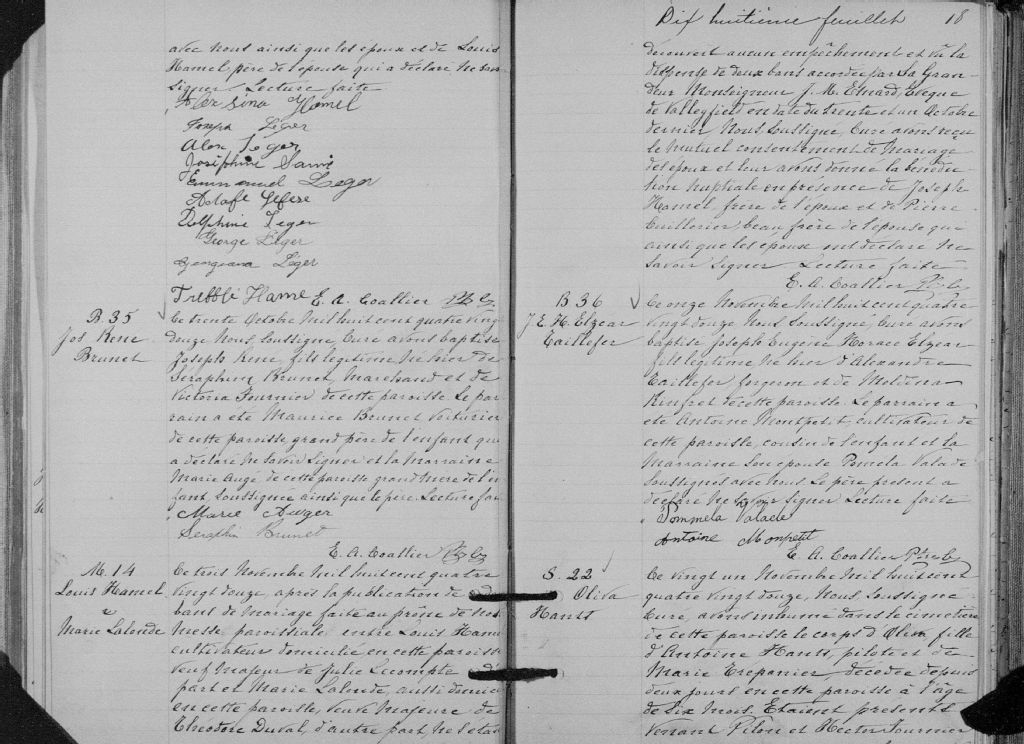 avec nous ainsi que les epoux et de Louis
Hamel père de l'epouse qui a declaré ne savoir
signer Lecture faite
Hamel
Joseph Léger
Alex Léger
Josephine Sauvé
Emmanuel Leger
Delphine Leger
George Léger
Georgeana Léger
Trefflé Hamel E. A. Coallier Ptre
B 35
Jos Rene
Brunet
Ce trente Octobre mil huit cent quatre vingt
douze Nous, Soussigné, Curé avons baptisé
Joseph Rene, fils legitime né hier de
Séraphin Brunet, Marchand et de
Victoria Fournier de cette paroisse Le par
rain a été Maurice Brunet Voiturier
de cette paroisse grand père de l'enfant qui
a declaré ne savoir signer et la Marraine
Marie Augé de cette paroisse grand mère de l'en
fant Soussignée ainsi que le père. Lecture fai
Marie Auger
Seraphin Brunet
E. A. Coallier Ptre
M. 14
Louis Hamel
&
Marie Lalonde
Ce trois Novembre mil huit cent quatre
vingt douze, après la publication de
bans de Mariage faite au prône de nos
Messe paroissiale entre Louis Hamel
cultivateur domicilié en cette paroisse
veuf majeur de Julie Lecompte d'
part et Marie Lalonde, aussi domici
en cette paroisse, veuve majeure de
Theodore Duval, d'autre part, ne s'etan
Dix huitième feuillet 18
découvert aucun empêchement et vu la
dispense de deux bans accordée par Sa Gran
deur Monseigneur J. M. Emard, Evêque
de Valleyfield en date du trente et un Octobre
dernier Nous, Soussigné, Curé avons reçu
le mutuel consentement de Mariage
des epoux et leur avons donné la bénédic
tion nuptiale en presence de Joseph
Hamel, frère de l'epoux et de Pierre
Cuillerier, beau frère de l'epouse qui
ainsi que les epoux ont declaré ne
savoir signer Lecture faite
E. A. Coallier Ptre
B 36
J. E. H. Elzear
Taillefer
Ce onze Novembre mil huit cent quatre
vingt douze Nous, Soussigné, Curé avons
baptisé Joseph Eugène Horace Elzear
fils legitime né hier d'Alexandre
Taillefer forgeron et de Melvina
Rinfret de cette paroisse. Le parrain a
été Antoine Montpetit, cultivateur de
cette paroisse, cousin de l'enfant et la
Marraine son epouse Pomela Valade
soussignés avec nous. Le père present a
declaré ne savoir signer Lecture faite
Pommela Valade
Antoine Monpetit
E. A. Coallier Ptre
S. 22
Oliva
Hants
Ce vingt un Novembre mil huit cent
quatre vingt douze, Nous, Soussigné
Curé, avons inhumé dans le cimetière
de cette paroisse le corps d'Oliva fille
d'Antoine Hants, pilote et de
Marie Trepanier, décédée depuis
deux jours en cette paroisse à l'âge
de Six mois. Etaient presents
Venant Pilon et Hector Fournier